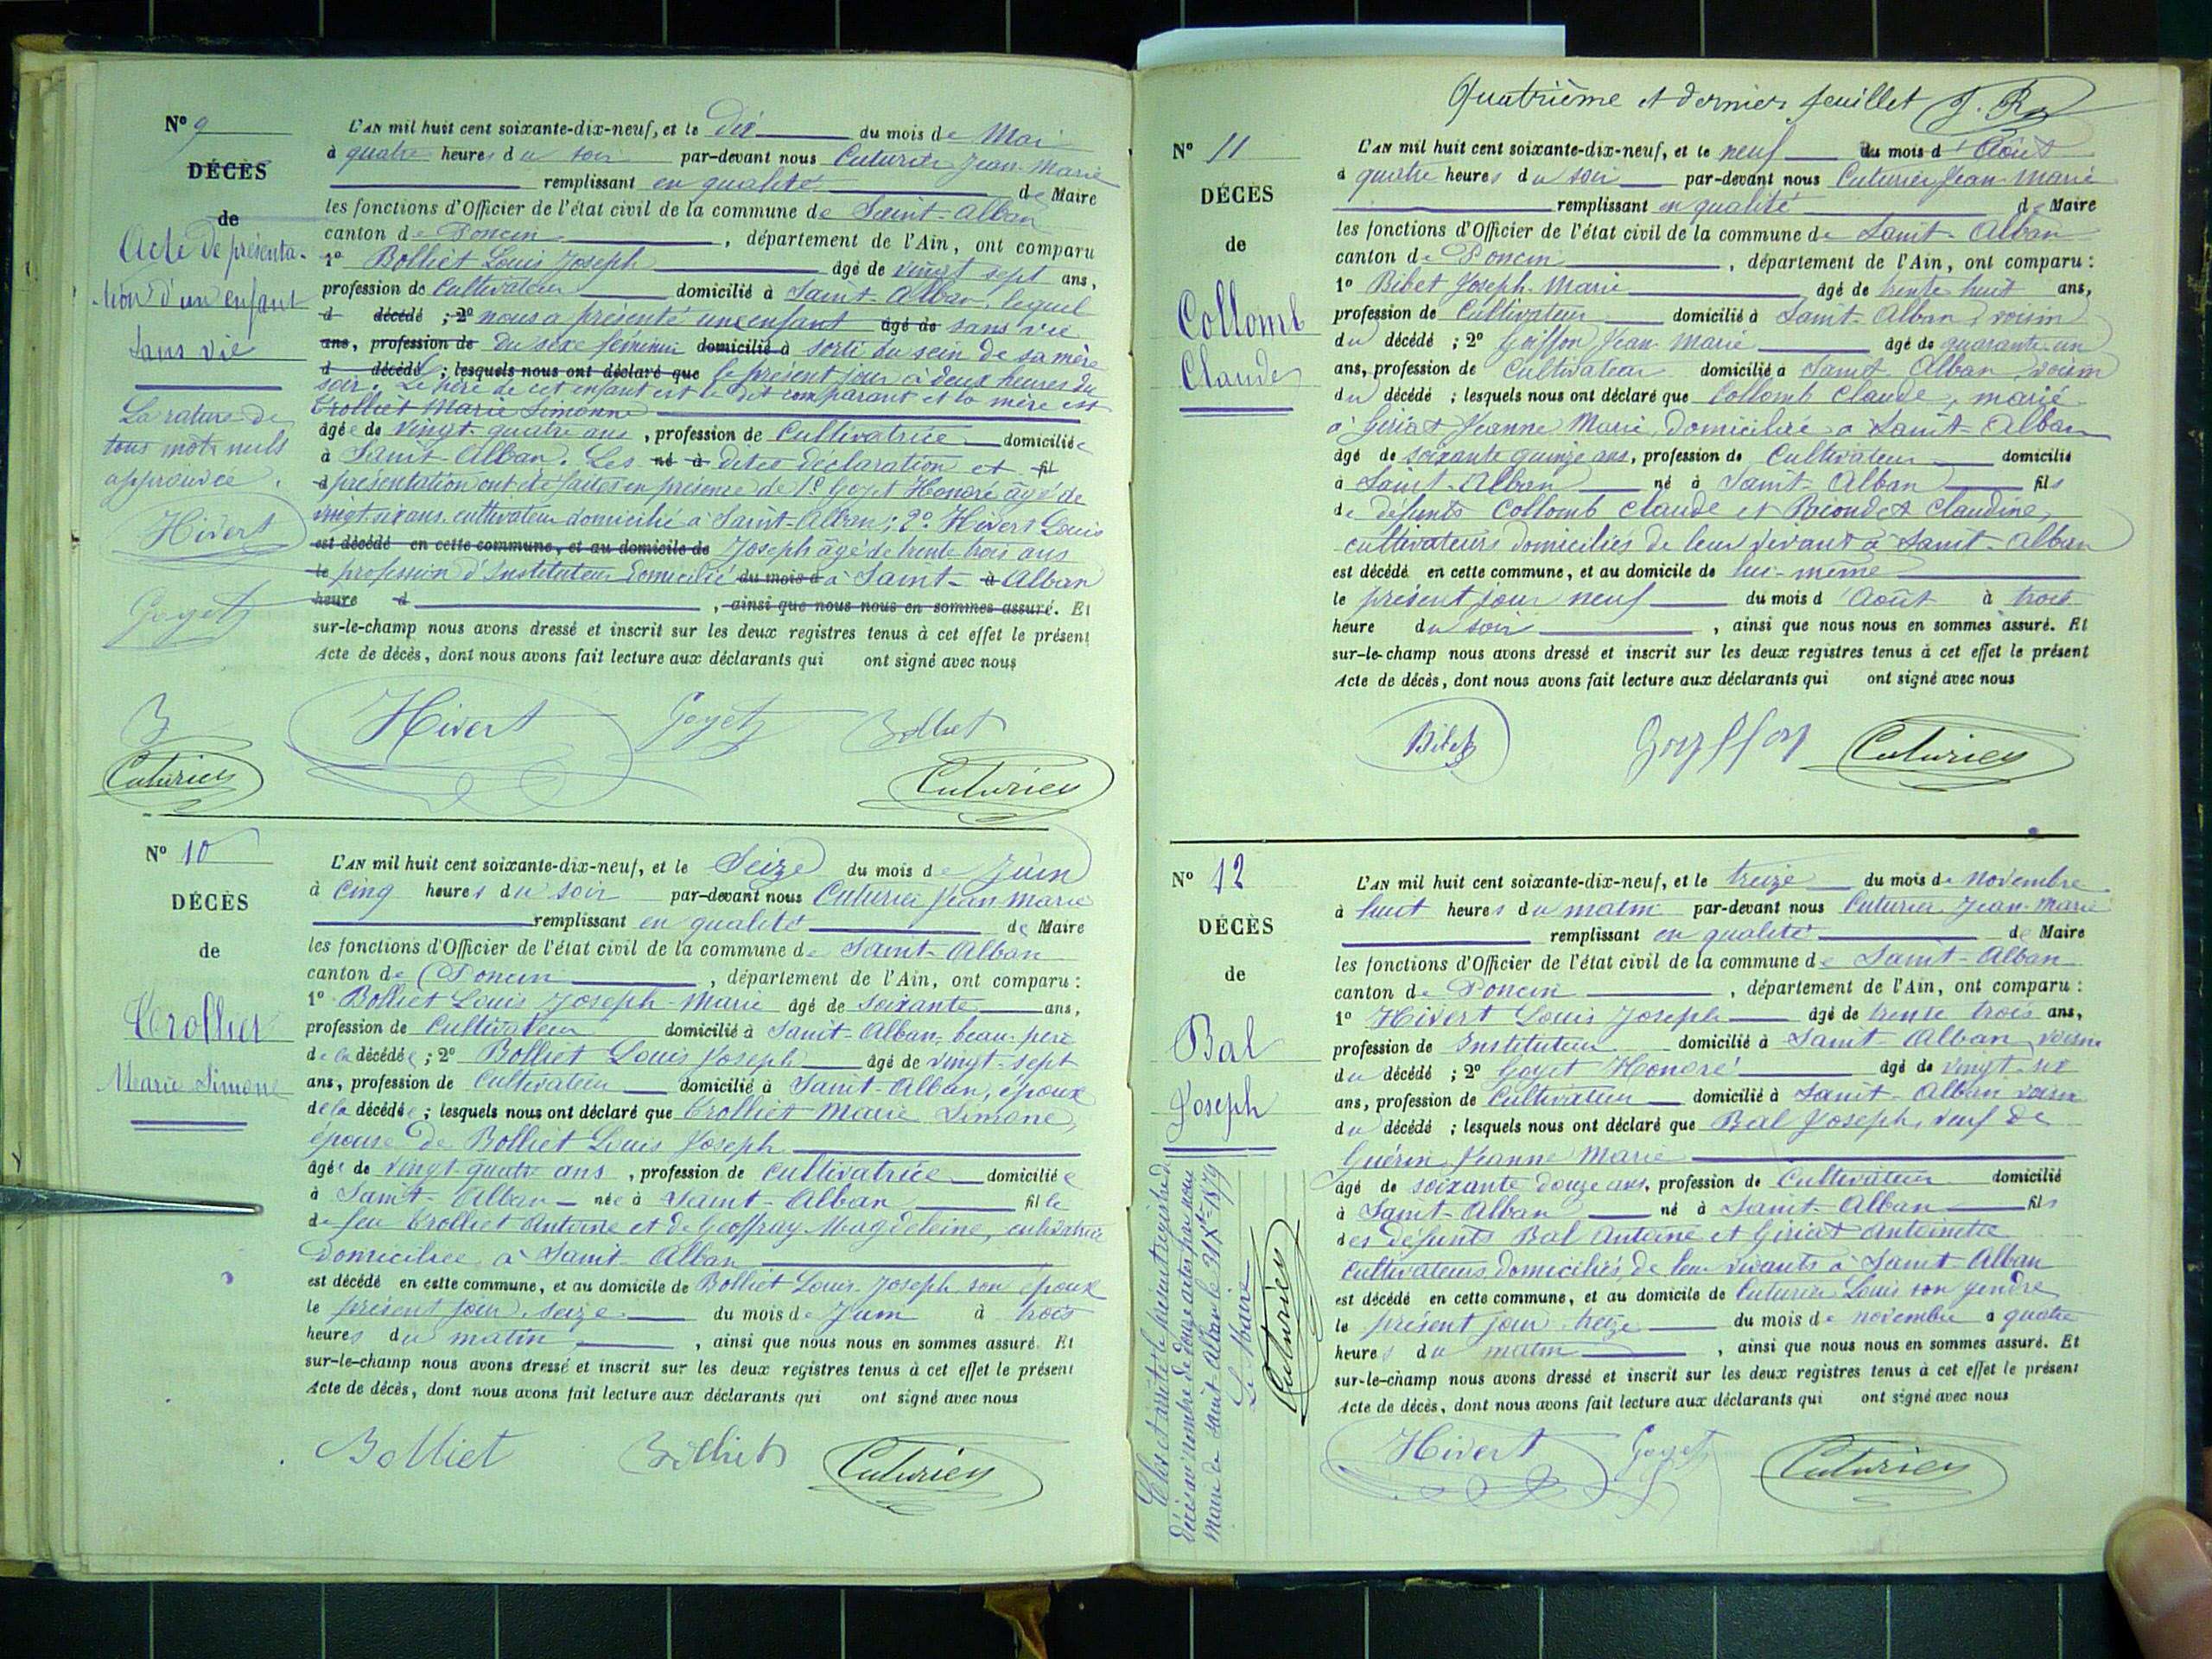 Nº 9
DÉCÈS
de
Acte de présenta-
tion d'un enfant
sans vie
La rature de
tous mots nuls
approuvée.
Hivert
Goyet
B
Cuturier
L'AN mil huit cent soixante-dix-neuf, et le Dix du mois de Mai
à quatre heures du soir par-devant nous Cuturier Jean-Marie
remplissant en qualité de Maire
les fonctions d'Officier de l'état civil de la commune de Saint-Alban
canton de Poncin, département de l'Ain, ont comparu
1º Bolliet Louis Joseph âgé de vingt sept ans,
profession de Cultivateur domicilié à Saint-Alban, lequel
d décédé ; 2º nous a présenté un enfant âgé de sans vie
ans, profession de du sexe féminin domicilié à sorti du sein de sa mère
d décédé ; lesquels nous ont déclaré que le présent jour à deux heures du
soir. Le père de cet enfant est le dit comparant et la mère est
Trolliet Marie Simonne
âgée de vingt-quatre ans, profession de Cultivatrice domiciliée
à Saint-Alban. Les né à dites déclaration et fil
d présentation ont été faites en présence de 1º Goyet Honoré âgé de
vingt six ans, cultivateur domicilié à Saint-Alban ; 2º Hivert Louis
est décédé en cette commune, et au domicile de Joseph âgé de trente trois ans
le profession d'Instituteur domicilié du mois d à Saint- à Alban
heure d , ainsi que nous nous en sommes assuré. Et
sur-le-champ nous avons dressé et inscrit sur les deux registres tenus à cet effet le présent
Acte de décès, dont nous avons fait lecture aux déclarants qui ont signé avec nous
Hivert Goyet Bolliet
Cuturier
Nº 10
DÉCÈS
de
Trolliet
Marie Simone
L'AN mil huit cent soixante-dix-neuf, et le Seize du mois de Juin
à cinq heures du soir par-devant nous Cuturier Jean Marie
remplissant en qualité de Maire
les fonctions d'Officier de l'état civil de la commune de Saint-Alban
canton de Poncin, département de l'Ain, ont comparu :
1º Bolliet Louis Joseph-Marie âgé de soixante ans,
profession de Cultivateur domicilié à Saint-Alban, beau-père
de la décédée ; 2º Bolliet Louis Joseph âgé de vingt-sept
ans, profession de Cultivateur domicilié à Saint-Alban, époux
de la décédée ; lesquels nous ont déclaré que Trolliet Marie Simone,
épouse de Bolliet Louis Joseph
âgée de vingt-quatre ans, profession de cultivatrice domiciliée
à Saint-Alban née à Saint-Alban fille
de feu Trolliet Antoine et de Geoffray Magdeleine, cultivatrice
domiciliée à Saint-Alban
est décédé en cette commune, et au domicile de Bolliet Louis Joseph son époux
le présent jour, seize du mois de Juin à trois
heures du matin, ainsi que nous nous en sommes assuré. Et
sur-le-champ nous avons dressé et inscrit sur les deux registres tenus à cet effet le présent
Acte de décès, dont nous avons fait lecture aux déclarants qui ont signé avec nous
Bolliet Bolliet Cuturier
Quatrième et dernier feuillet
Nº 11
DÉCÈS
de
Collomb
Claude
L'AN mil huit cent soixante-dix-neuf, et le neuf du mois d'Août
à quatre heures du soir par-devant nous Cuturier Jean-Marie
remplissant en qualité de Maire
les fonctions d'Officier de l'état civil de la commune de Saint-Alban
canton de Poncin, département de l'Ain, ont comparu :
1º Bibet Joseph-Marie âgé de trente huit ans,
profession de Cultivateur domicilié à Saint-Alban, voisin
du décédé ; 2º Goiffon Jean-Marie âgé de quarante-un
ans, profession de Cultivateur domicilié à Saint-Alban voisin
du décédé ; lesquels nous ont déclaré que Collomb Claude, marié
à Giriat Jeanne Marie, domiciliée à Saint-Alban
âgé de soixante quinze ans, profession de Cultivateur domicilié
à Saint-Alban né à Saint-Alban fils
de défunts Collomb Claude et Claudine,
cultivateurs domiciliés de leur vivant à Saint-Alban
est décédé en cette commune, et au domicile de lui-même
le présent jour neuf du mois d'Août à trois
heure du soir, ainsi que nous nous en sommes assuré. Et
sur-le-champ nous avons dressé et inscrit sur les deux registres tenus à cet effet le présent
Acte de décès, dont nous avons fait lecture aux déclarants qui ont signé avec nous
Bibet Goyffon Cuturier
Nº 12
DÉCÈS
de
Bal
Joseph
Clos et arrêté le présent registre de
décès au nombre de douze actes par nous
maire de Saint-Alban le 31 Xbre 1879
Le Maire
Cuturier
L'AN mil huit cent soixante-dix-neuf, et le treize du mois de novembre
à huit heures du matin par-devant nous Cuturier Jean-Marie
remplissant en qualité de Maire
les fonctions d'Officier de l'état civil de la commune de Saint-Alban
canton de Poncin, département de l'Ain, ont comparu :
1º Hivert Louis Joseph âgé de trente trois ans,
profession de Instituteur domicilié à Saint-Alban, voisin
du décédé ; 2º Goyet Honoré âgé de vingt-six
ans, profession de Cultivateur domicilié à Saint-Alban voisin
du décédé ; lesquels nous ont déclaré que Bal Joseph, veuf de
Guérin Jeanne Marie
âgé de soixante douze ans, profession de Cultivateur domicilié
à Saint-Alban né à Saint-Alban fils
des défunts Bal Antoine et Giriat Antoinette
Cultivateurs domiciliés, de leur vivants à Saint-Alban
est décédé en cette commune, et au domicile de Cuturier Louis son gendre
le présent jour treize du mois de novembre à quatre
heures du matin, ainsi que nous nous en sommes assuré. Et
sur-le-champ nous avons dressé et inscrit sur les deux registres tenus à cet effet le présent
Acte de décès, dont nous avons fait lecture aux déclarants qui ont signé avec nous
Hivert Goyet Cuturier